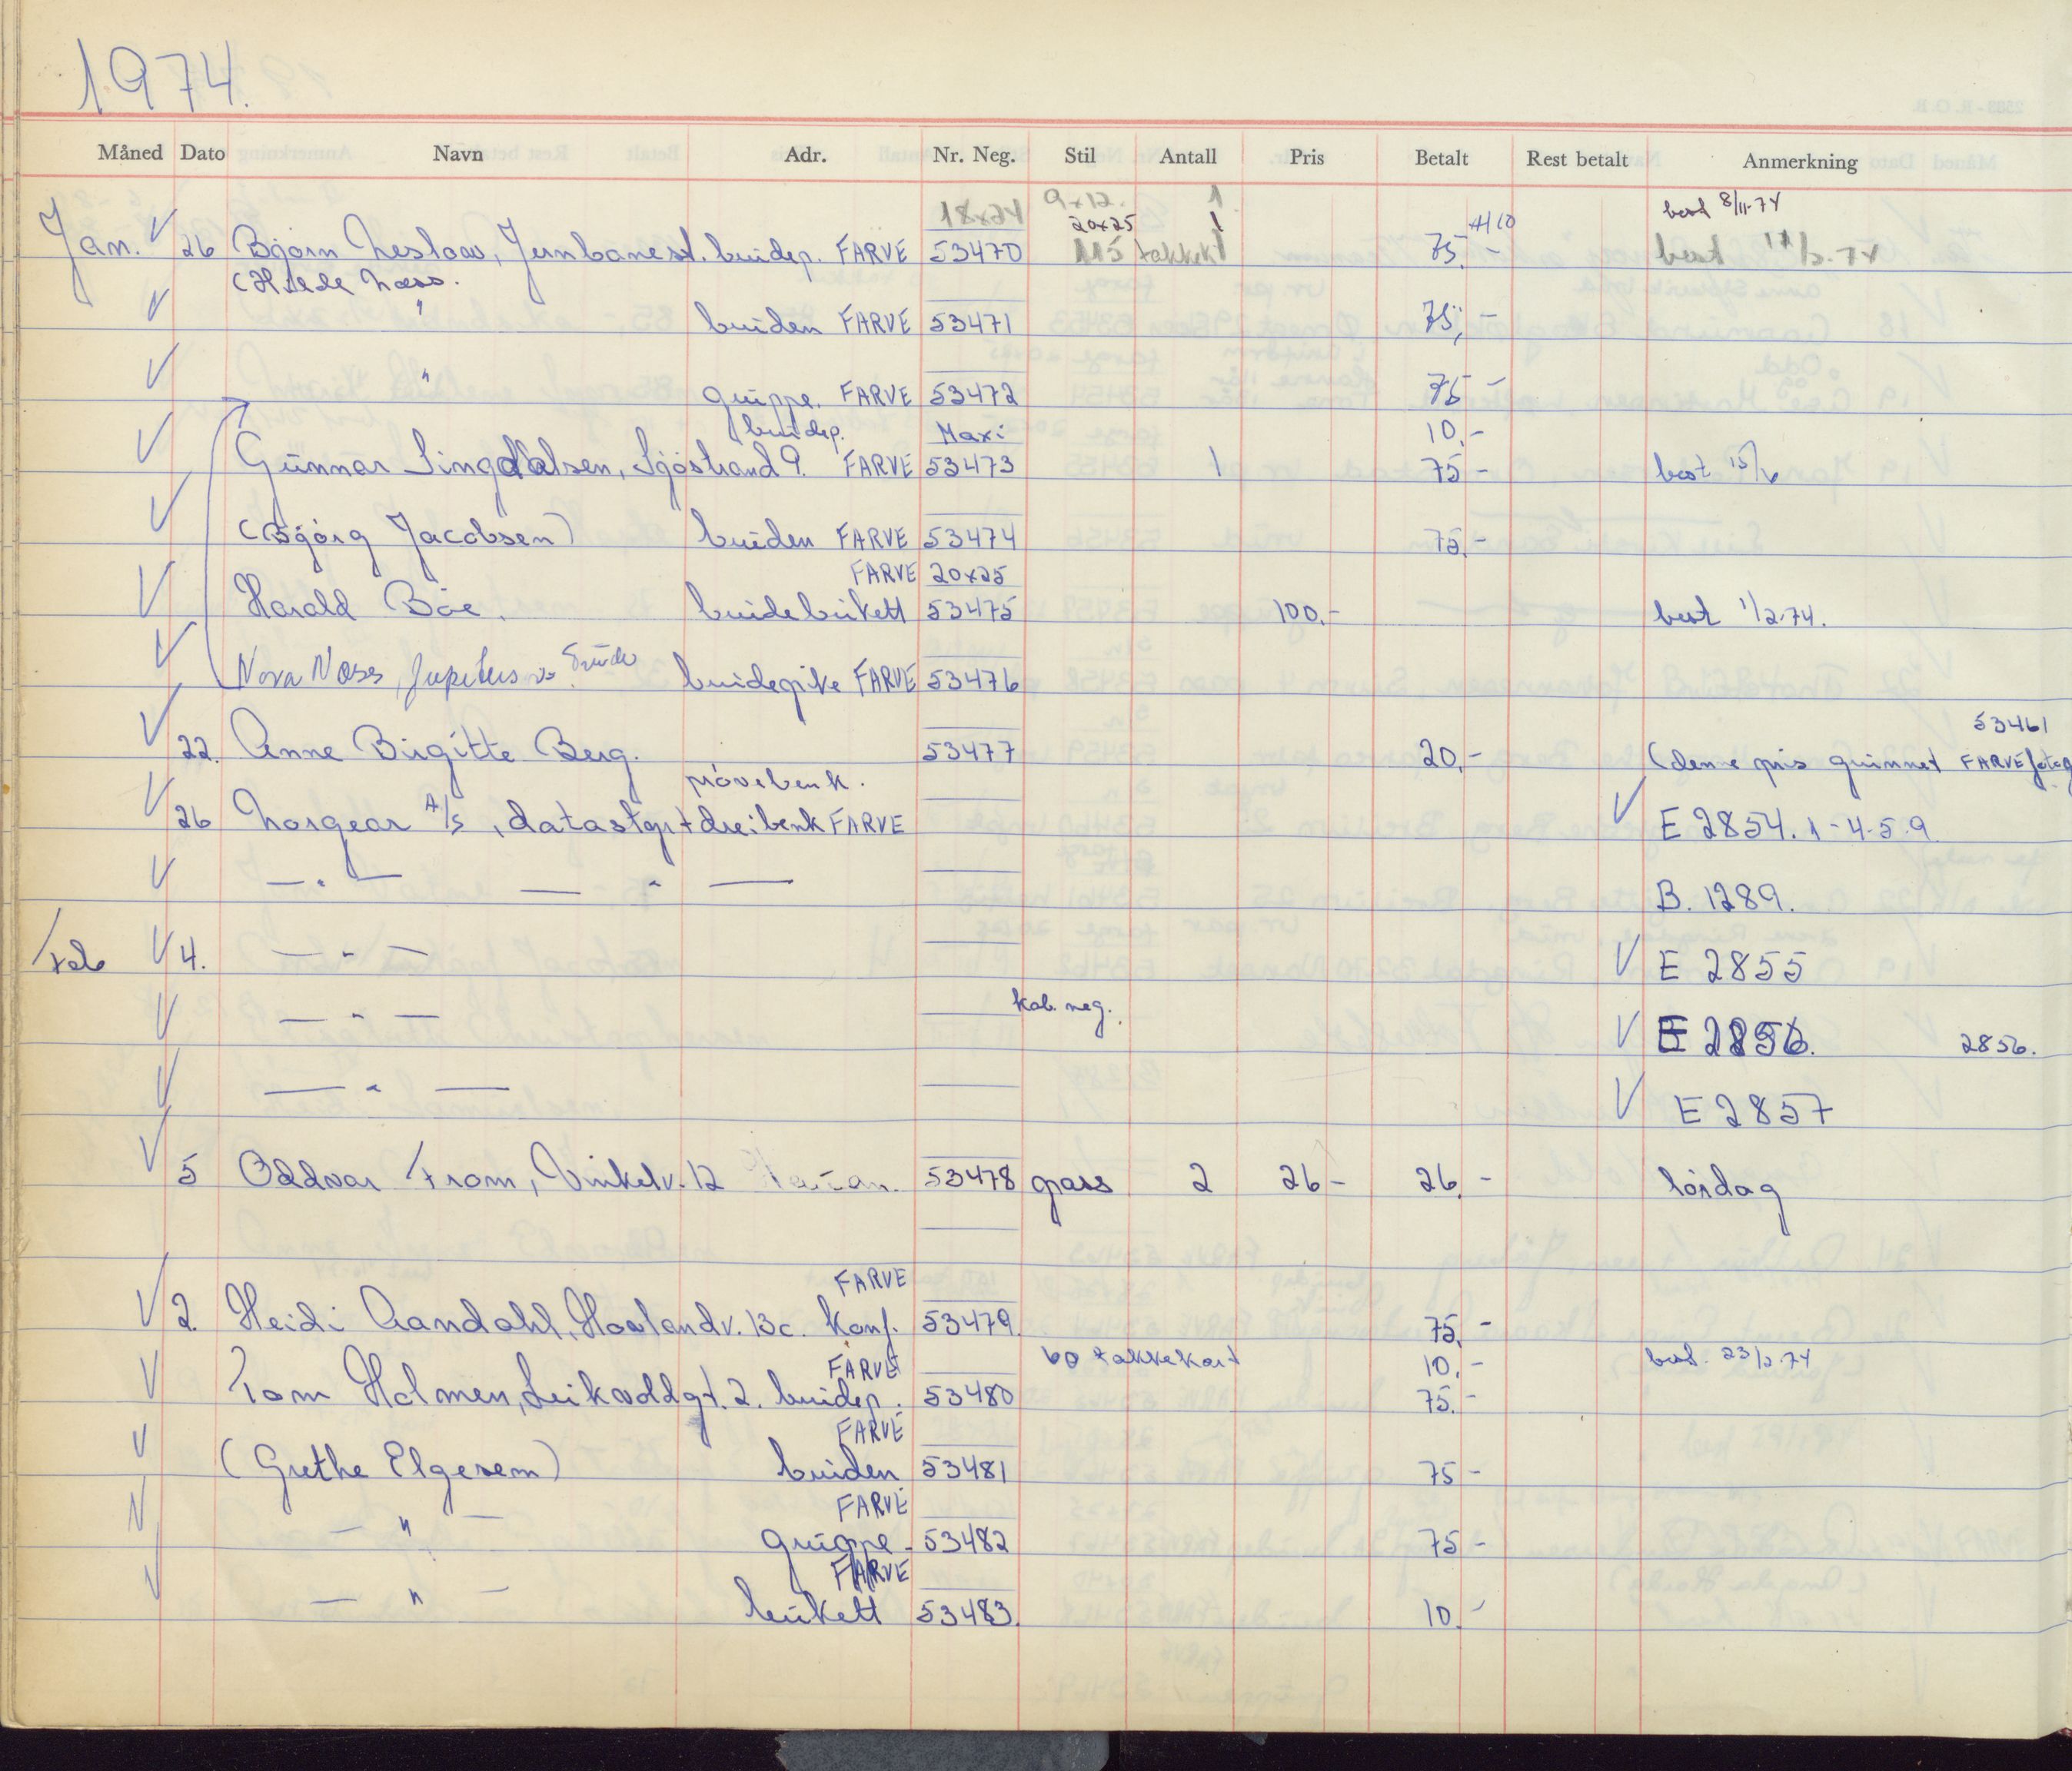 1974.
Måned Dato Navn Adr. Nr. Neg. Stil Antall Pris Betalt Rest betalt Anmerkning
18x24 9x12. 1 best 8/11-74
20x25 1
Jan. 26 Bjørn Neslow, Jernbanest. brudep. FARVE 53470 115 takkek 75.- best 1/3-74
(Hilde Næss.
" bruden FARVE 53471 75,-
" gruppe. FARVE 53472 75-
brudep. Maxi 10.-
Gunnar Lingdalsen, Sjøstrand 9. FARVE 53473 1 75- best 15/6
(Bjørg Jacobsen) bruden FARVE 53474 75.-
FARVE 20x25
Harald Bøe. brudebukett 53475 100.- best 1/2-74.
Nora Næss, Jupitus brudepike FARVE 53476
53461
22. Anne Birgitte Berg. 53477 20.- (denne pris grunnet FARVE fotog
prøvebenk.
26 Norgear A/S, datastyrt dreibenk FARVE E 2854. 1-4-5-9
— " — — " — B. 1289.
Feb 4. — " — E 2855
— " — kab. neg. E 2856. 2856.
— " — E 2857
5 Oddvar From, Vinkelv. 12 53478 pass 2 26- 26.- lørdag
FARVE
2. Heidi Aandahl, Hovlandv. 13c. konf. 53479. 75.-
FARVE 60 takkekort 10.- best. 23/2-74
Tom Holmen, Leikvollgt. 2. brudep. 53480 75.-
FARVE
(Grethe Elgesem) bruden 53481 75-
FARVE
— " — gruppe- 53482 75-
FARVE
— " — bukett 53483. 10.-